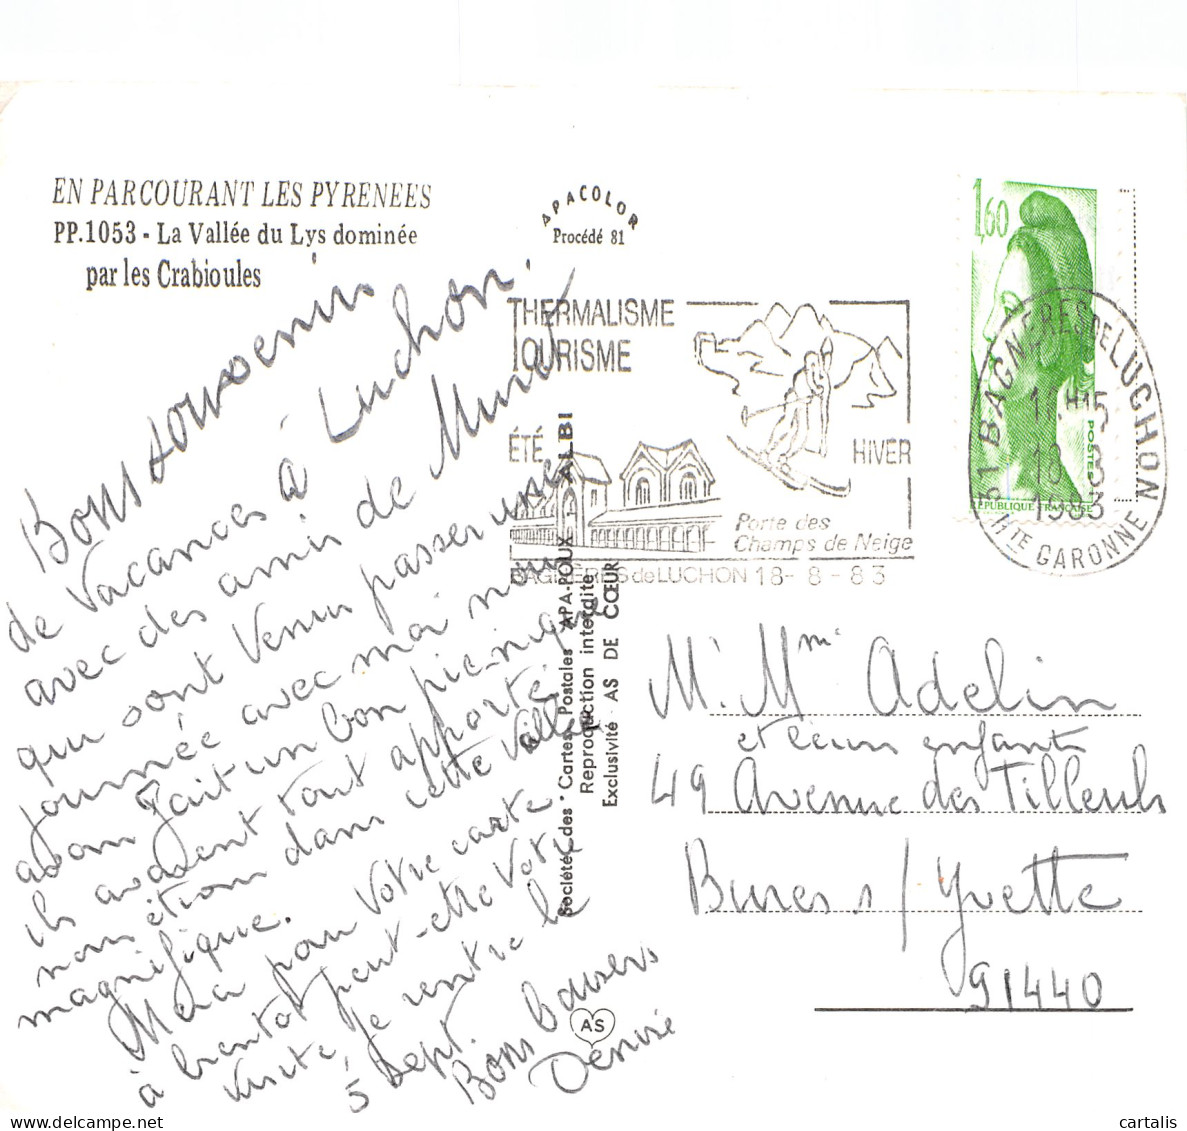 EN PARCOURANT LES PYRENEES
PP.1053 - La Vallée du Lys dominée
par les Crabioules
APACOLOR
Procédé 81
THERMALISME
TOURISME
ÉTÉ
HIVER
Porte des
Champs de Neige
BAGNÈRES de LUCHON 18-8-83
1,60
POSTES
RÉPUBLIQUE FRANÇAISE
31 BAGNERES DE LUCHON
1983
Hte GARONNE
Bons souvenirs
de Vacances à Luchon.
avec des amis de Muret
qui sont Venus passer une
journée avec moi nous
avons fait un bon pic-nique
ils avaient tout apporté
nous étions dans cette vallée
magnifique.
Merci pour Votre carte.
à bientot peut-etre Votre
visite, je rentre le
5 Sept.
Bons baisers
Denise
Société des Cartes Postales APA-POUX ALBI
Reproduction interdite
Exclusivité AS DE CŒUR
AS
M. Mme Adelin
et leurs enfants
49 Avenue des Tilleuls
Bures s/Yvette
91440
cartalis